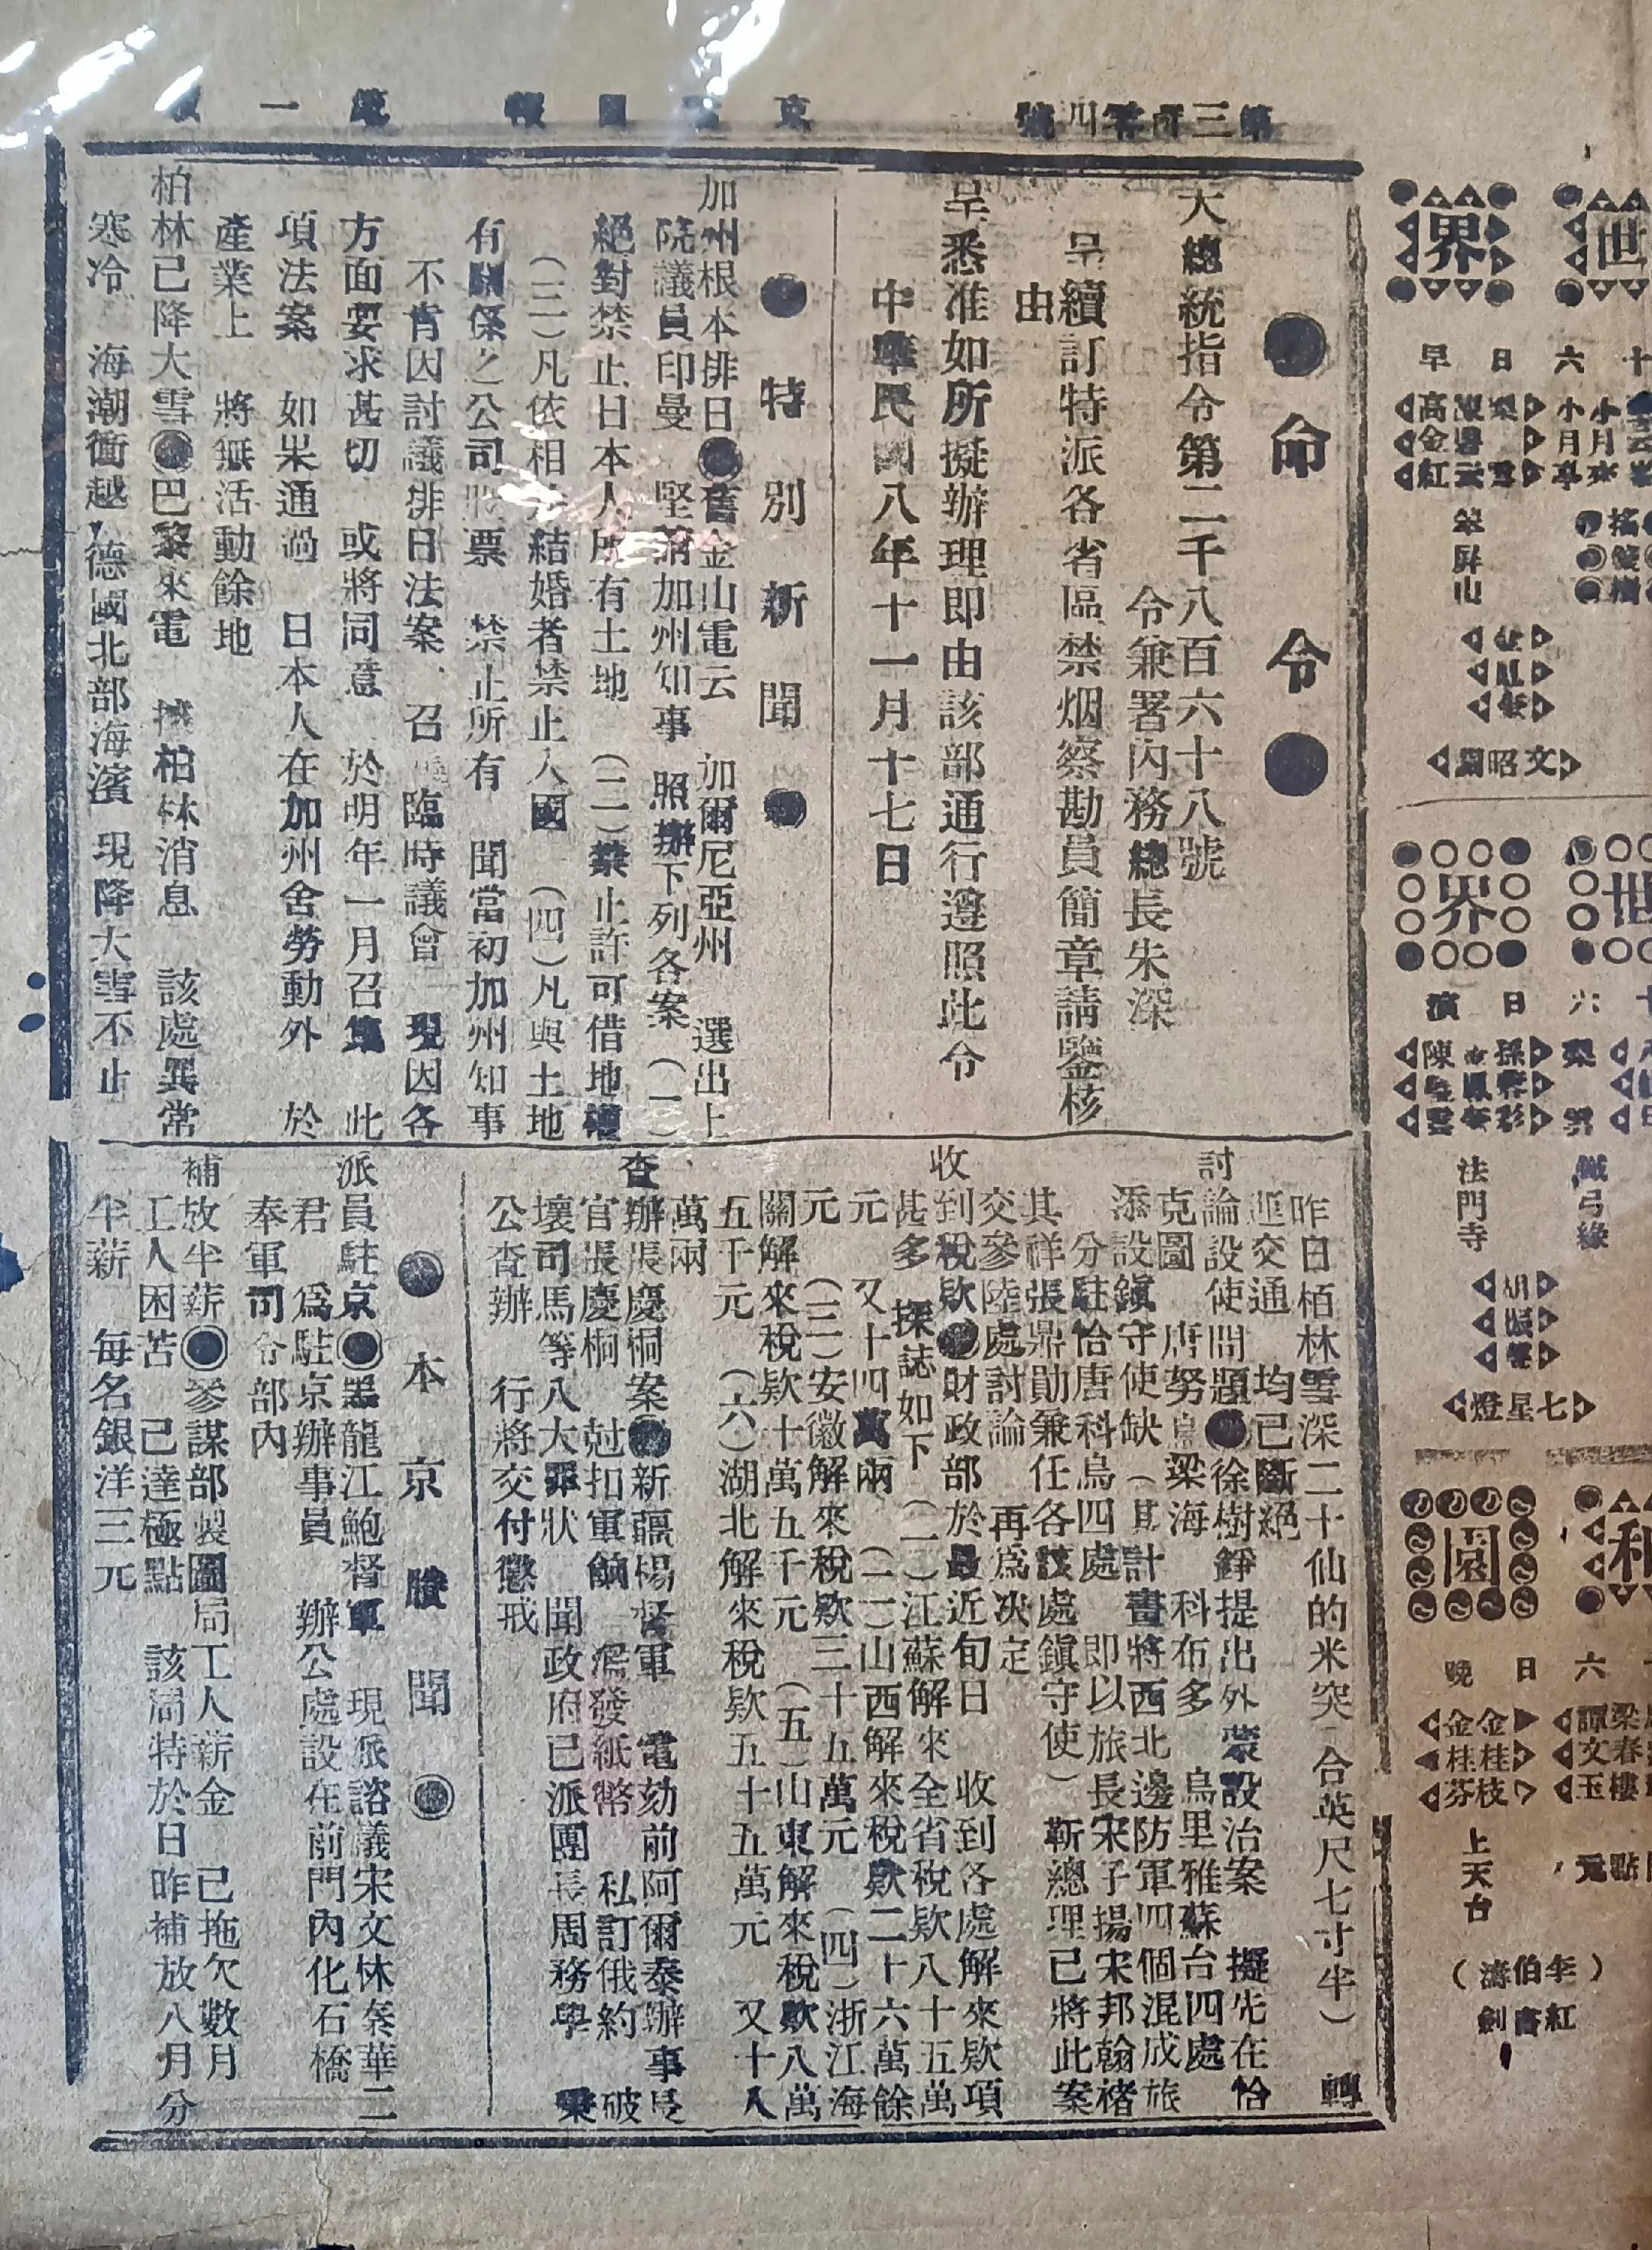 第三百零四號
●命令●
大總統指令第二千八百六十八號
令兼署內務總長朱深
呈續訂特派各省區禁烟察勘員簡章請鑒核
由
呈悉准如所擬辦理即由該部通行遵照此令
中華民國八年十一月十七日
●特別新聞●
加州根本排日●舊金山電云 加爾尼亞州 選出上
院議員印曼 堅謂加州知事 照辦下列各案 (一)
絕對禁止日本人所有土地 (二)禁止許可借地權
(三)凡依相 結婚者禁止入國 (四)凡與土地
有關係之公司 票 禁止所有 聞當初加州知事
不肯因討議排日法案、召 臨時議會 現因各
方面要求甚切 或將同意 於明年一月召集 此
項法案 如果通過 日本人在加州舍勞動外 於
產業上 將無活動餘地
柏林已降大雪●巴黎來電 據柏林消息 該處異常
寒冷 海潮衝越 德國北部海濱 現降大雪不止
昨日栢林雪深二十仙的米突(合英尺七寸半) 轉
運交通 均已斷絕
討論設使問題●徐樹錚提出外蒙設治案 擬先在恰
克圖 唐努烏梁海 科布多 烏里雅蘇台四處
添設鎮守使缺 (其計畫將西北邊防軍四個混成旅
分駐恰唐科烏四處 即以旅長宋子揚宋邦翰褚
其祥張鼎勛兼任各該處鎮守使) 靳總理已將此案
交參陸處討論 再爲決定
收到稅欵●財政部於最近旬日 收到各處解來欵項
甚多 探誌如下 (一)江蘇解來全省稅欵八十五萬
元 又十四萬兩 (二)山西解來稅欵二十六萬餘
元 (三)安徽解來稅欵三十五萬元 (四)浙江海
關解來稅欵十萬五千元 (五)山東解來稅欵八萬
五千元 (六)湖北解來稅欵五十五萬元 又十八
萬兩
查辦張慶桐案●新疆楊督軍 電劾前阿爾泰辦事長
官張慶桐 尅扣軍餉 濫發紙幣 私訂俄約 破
壞司馬等八大罪狀 聞政府已派團長周務學 秉
公查辦 行將交付懲戒
●本京瑣聞●
派員駐京●黑龍江鮑督軍 現派諮議宋文林秦華二
君 爲駐京辦事員 辦公處設在前門內化石橋
奉軍司令部內
補放半薪●參謀部製圖局工人薪金 已拖欠數月
工人困苦 已達極點 該局特於日昨補放八月分
半薪 每名銀洋三元
世界
六日早
小月亭
小月來
高金紅
笨屏山
文昭關
世界
六日演
鐵弓緣
法門寺
胡振聲
七星燈
園
六日晚
梁春樓
譚文玉
金桂枝
金桂芬
上天台
(李伯濤)
紅書劍